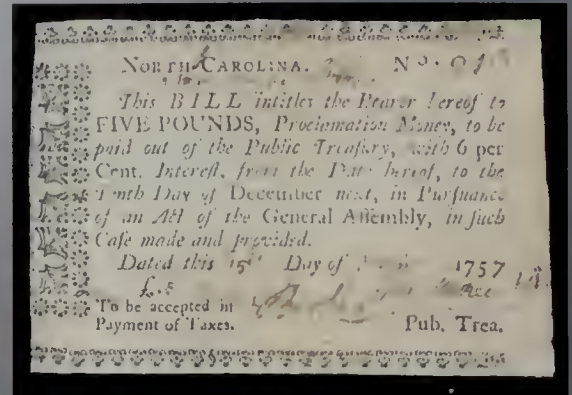 NORTH CAROLINA. No.
This BILL intitles the Bearer hereof to
FIVE POUNDS, Proclamation Money, to be
paid out of the Public Treaſury, with 6 per
Cent. Intereſt, from the Date hereof, to the
Tenth Day of December next, in Purſuance
of an Act of the General Aſſembly, in ſuch
Caſe made and provided.
Dated this 15th Day of 1757
£.5
To be accepted in
Payment of Taxes. Pub. Trea.